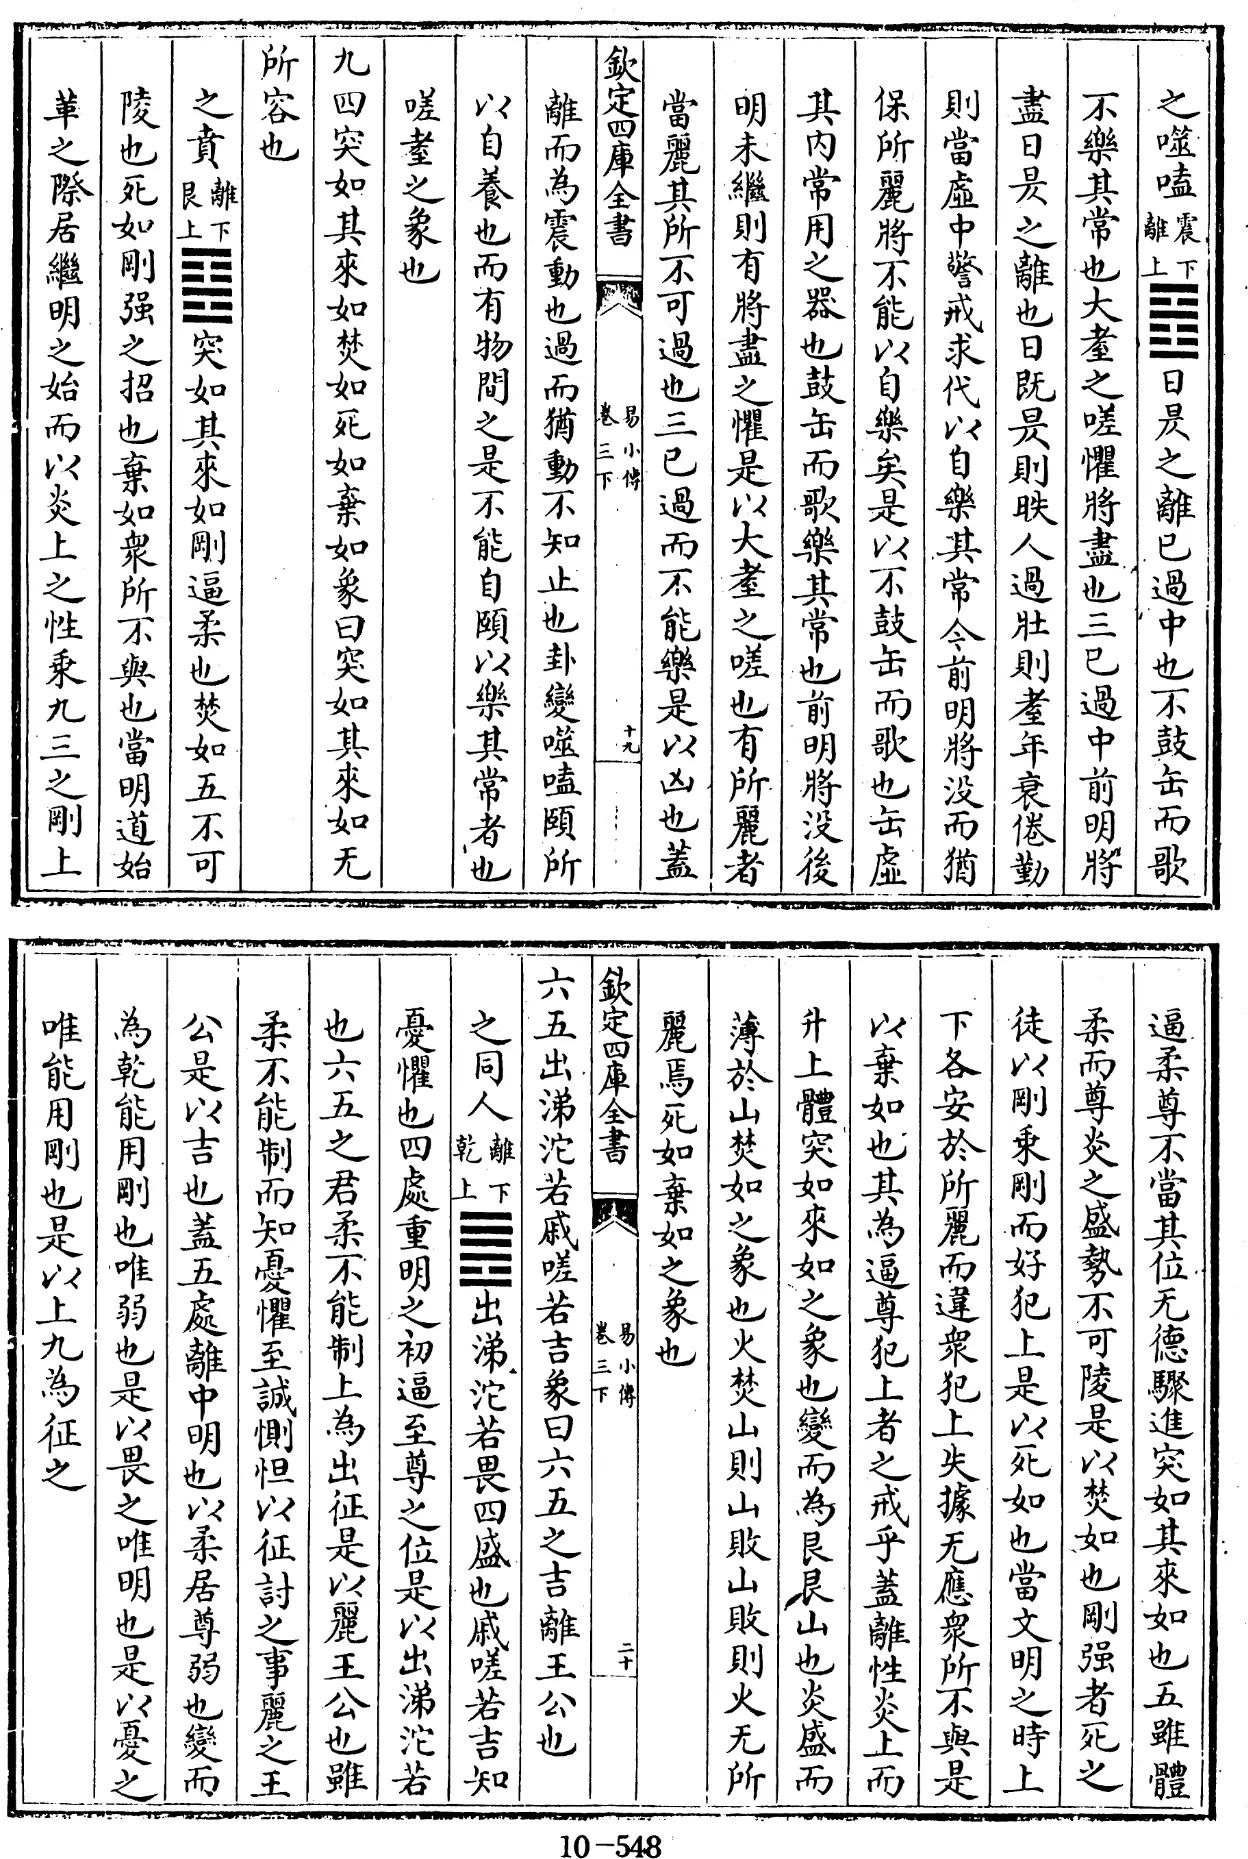 之噬嗑震下離上䷔日昃之離已過中也不鼓缶而歌
不樂其常也大耋之嗟懼將盡也三已過中前明將
盡日昃之離也日既昃則昳人過壯則耋年衰倦勤
則當虛中警戒求代以自樂其常今前明將没而猶
保所麗將不能以自樂矣是以不鼓缶而歌也缶虛
其内常用之器也鼓缶而歌樂其常也前明將没後
明未繼則有將盡之懼是以大耋之嗟也有所麗者
當麗其所不可過也三已過而不能樂是以凶也蓋
欽定四庫全書
易小傳
卷三下
十九
離而為震動也過而猶動不知止也卦變噬嗑頤所
以自養也而有物間之是不能自頤以樂其常者也
嗟耋之象也
九四突如其來如焚如死如棄如象曰突如其來如无
所容也
之賁離下艮上䷕突如其來如剛逼柔也焚如五不可
陵也死如剛强之招也棄如衆所不與也當明道始
革之際居繼明之始而以炎上之性乘九三之剛上
逼柔尊不當其位无德驟進突如其來如也五雖體
柔而尊炎之盛勢不可陵是以焚如也剛强者死之
徒以剛乘剛而好犯上是以死如也當文明之時上
下各安於所麗而違衆犯上失據无應衆所不與是
以棄如也其為逼尊犯上者之戒乎蓋離性炎上而
升上體突如來如之象也變而為艮艮山也炎盛而
薄於山焚如之象也火焚山則山敗山敗則火无所
麗焉死如棄如之象也
欽定四庫全書
易小傳
卷三下
二十
六五出涕沱若戚嗟若吉象曰六五之吉離王公也
之同人離下乾上䷌出涕沱若畏四盛也戚嗟若吉知
憂懼也四處重明之初逼至尊之位是以出涕沱若
也六五之君柔不能制上為出征是以麗王公也雖
柔不能制而知憂懼至誠惻怛以征討之事麗之王
公是以吉也蓋五處離中明也以柔居尊弱也變而
為乾能用剛也唯弱也是以畏之唯明也是以憂之
唯能用剛也是以上九為征之
10-548